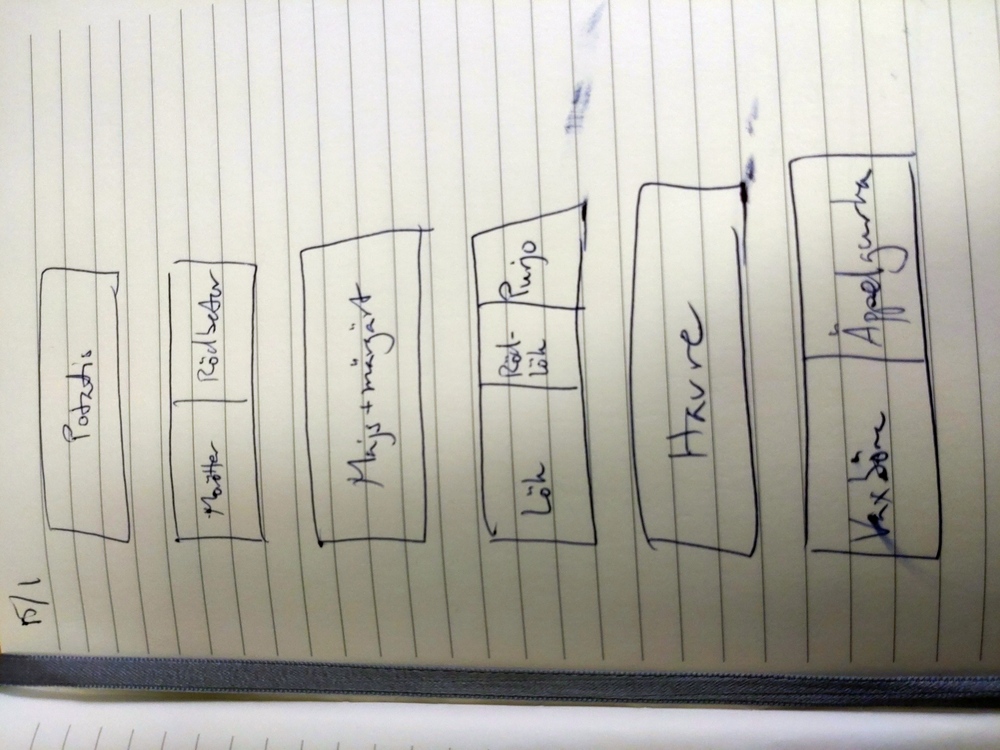 15/1
Potatis
Morötter Rödbetor
Majs + märgärt
Lök Röd- Purjo
lök
Havre
Vaxböna Äppelgurka